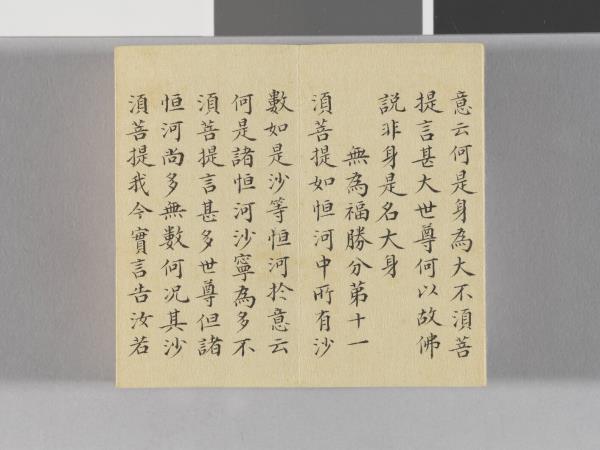 意云何是身為大不須菩
提言甚大世尊何以故佛
説非身是名大身
無為福勝分第十一
須菩提如恒河中所有沙
數如是沙等恒河於意云
何是諸恒河沙寧為多不
須菩提言甚多世尊但諸
恒河尚多無數何况其沙
須菩提我今實言告汝若